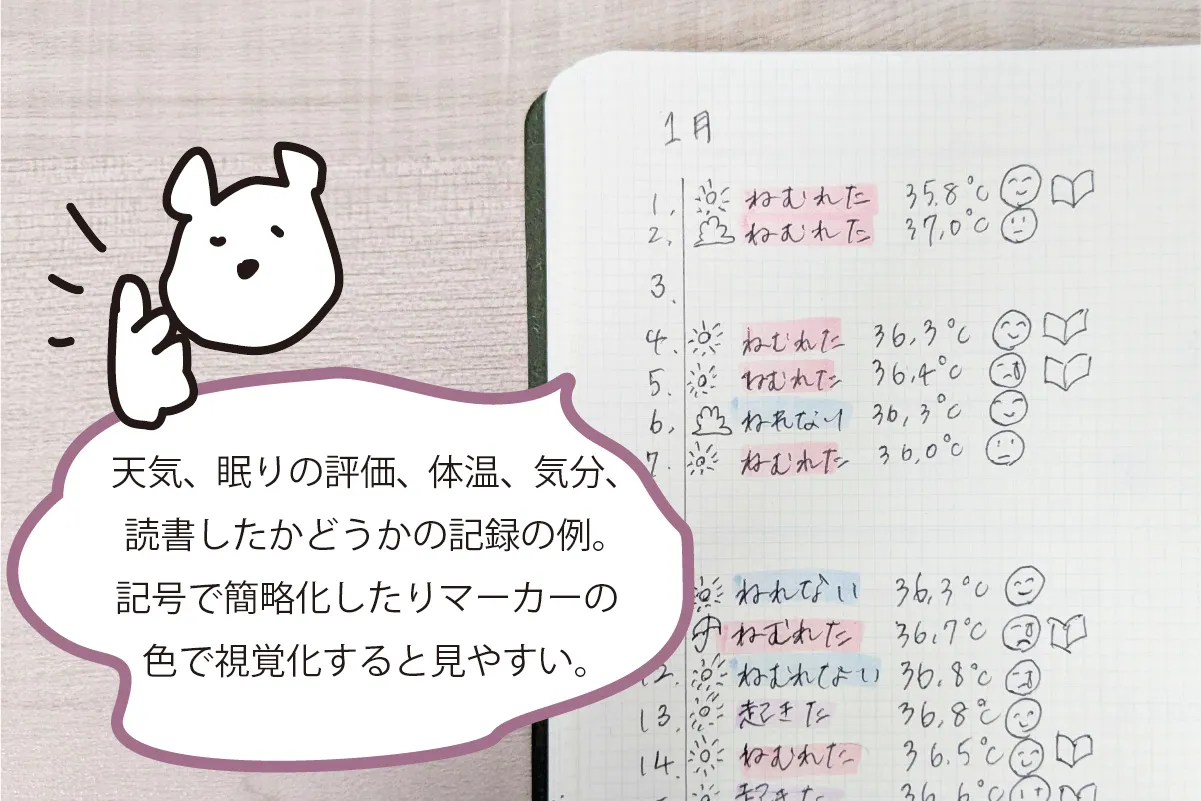 天気、眠りの評価、体温、気分、
読書したかどうかの記録の例。
記号で簡略化したりマーカーの
色で視覚化すると見やすい。
1月
1. ねむれた 35.8℃
2. ねむれた 37.0℃
3.
4. ねむれた 36.3℃
5. ねむれた 36.4℃
6. ねれない 36.3℃
7. ねむれた 36.0℃
ねれない 36.3℃
ねむれた 36.7℃
2. ねむれない 36.8℃
13. 起きた 36.8℃
14. ねむれた 36.5℃
起きた 36.6℃